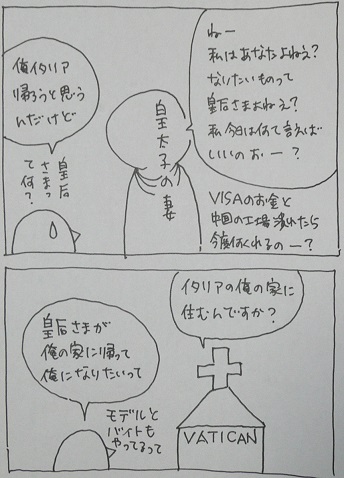 ねー
私はあなたよねえ?
なりたいものって
皇后さまよねえ?
私今日は何て言えば
いいのぉー?
VISAのお金と
中国の工場潰れたら
今度何くれるのー?
皇太子の妻
俺イタリア
帰ろうと思う
んだけど
皇后
さまっ
て何?
イタリアの俺の家に
住むんですか?
VATICAN
皇后さまが
俺の家に帰って
俺になりたいって
モデルと
バイトも
やってるって